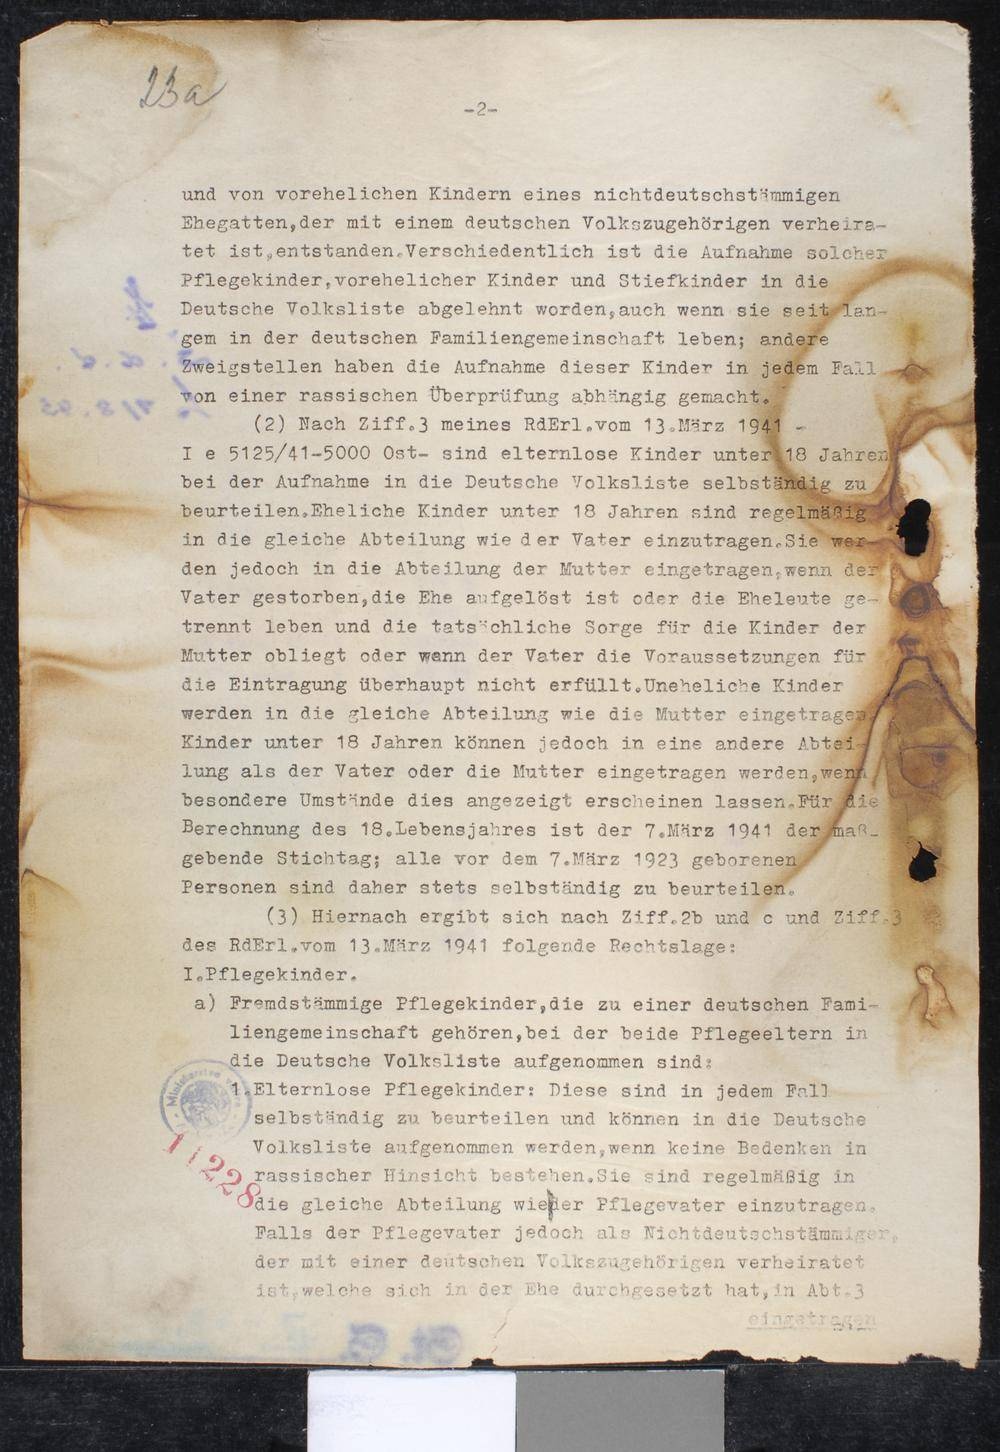 23a
-2-
und von vorehelichen Kindern eines nichtdeutschstämmigen
Ehegatten,der mit einem deutschen Volkszugehörigen verheira-
tet ist,entstanden.Verschiedentlich ist die Aufnahme solcher
Pflegekinder,vorehelicher Kinder und Stiefkinder in die
Deutsche Volksliste abgelehnt worden,auch wenn sie seit lan-
gem in der deutschen Familiengemeinschaft leben; andere
Zweigstellen haben die Aufnahme dieser Kinder in jedem Fall
von einer rassischen Überprüfung abhängig gemacht.
(2) Nach Ziff.3 meines RdErl.vom 13.März 1941 -
I e 5125/41-5000 Ost- sind elternlose Kinder unter 18 Jahren
bei der Aufnahme in die Deutsche Volksliste selbständig zu
beurteilen.Eheliche Kinder unter 18 Jahren sind regelmäßig
in die gleiche Abteilung wie der Vater einzutragen.Sie wer-
den jedoch in die Abteilung der Mutter eingetragen,wenn der
Vater gestorben,die Ehe aufgelöst ist oder die Eheleute ge-
trennt leben und die tatsächliche Sorge für die Kinder der
Mutter obliegt oder wenn der Vater die Voraussetzungen für
die Eintragung überhaupt nicht erfüllt.Uneheliche Kinder
werden in die gleiche Abteilung wie die Mutter eingetragen.
Kinder unter 18 Jahren können jedoch in eine andere Abtei-
lung als der Vater oder die Mutter eingetragen werden,wenn
besondere Umstände dies angezeigt erscheinen lassen.Für die
Berechnung des 18.Lebensjahres ist der 7.März 1941 der maß-
gebende Stichtag; alle vor dem 7.März 1923 geborenen
Personen sind daher stets selbständig zu beurteilen.
(3) Hiernach ergibt sich nach Ziff.2b und c und Ziff.3
des RdErl.vom 13.März 1941 folgende Rechtslage:
I.Pflegekinder.
a) Fremdstämmige Pflegekinder,die zu einer deutschen Fami-
liengemeinschaft gehören,bei der beide Pflegeeltern in
die Deutsche Volksliste aufgenommen sind:
1.Elternlose Pflegekinder: Diese sind in jedem Fall
selbständig zu beurteilen und können in die Deutsche
Volksliste aufgenommen werden,wenn keine Bedenken in
rassischer Hinsicht bestehen.Sie sind regelmäßig in
11228
die gleiche Abteilung wie der Pflegevater einzutragen.
Falls der Pflegevater jedoch als Nichtdeutschstämmiger,
der mit einer deutschen Volkszugehörigen verheiratet
ist,welche sich in der Ehe durchgesetzt hat,in Abt.3
eingetragen